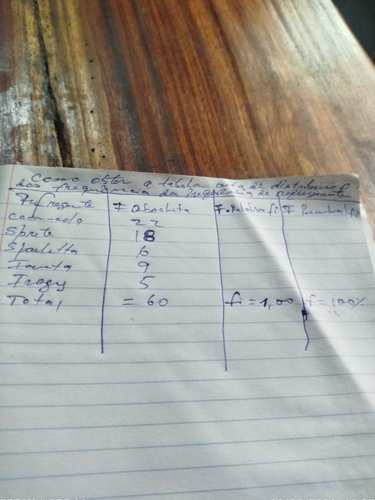 Como obter a tabela de distribuição
das frequência da frequência de refrigerante
Refrigerante F Absoluta F. Relativa fi F Percentual
comprado 22
Sprite 18
Sparletta 6
Fanta 9
Frozy 5
Total = 60 fi = 1,00 f = 100%